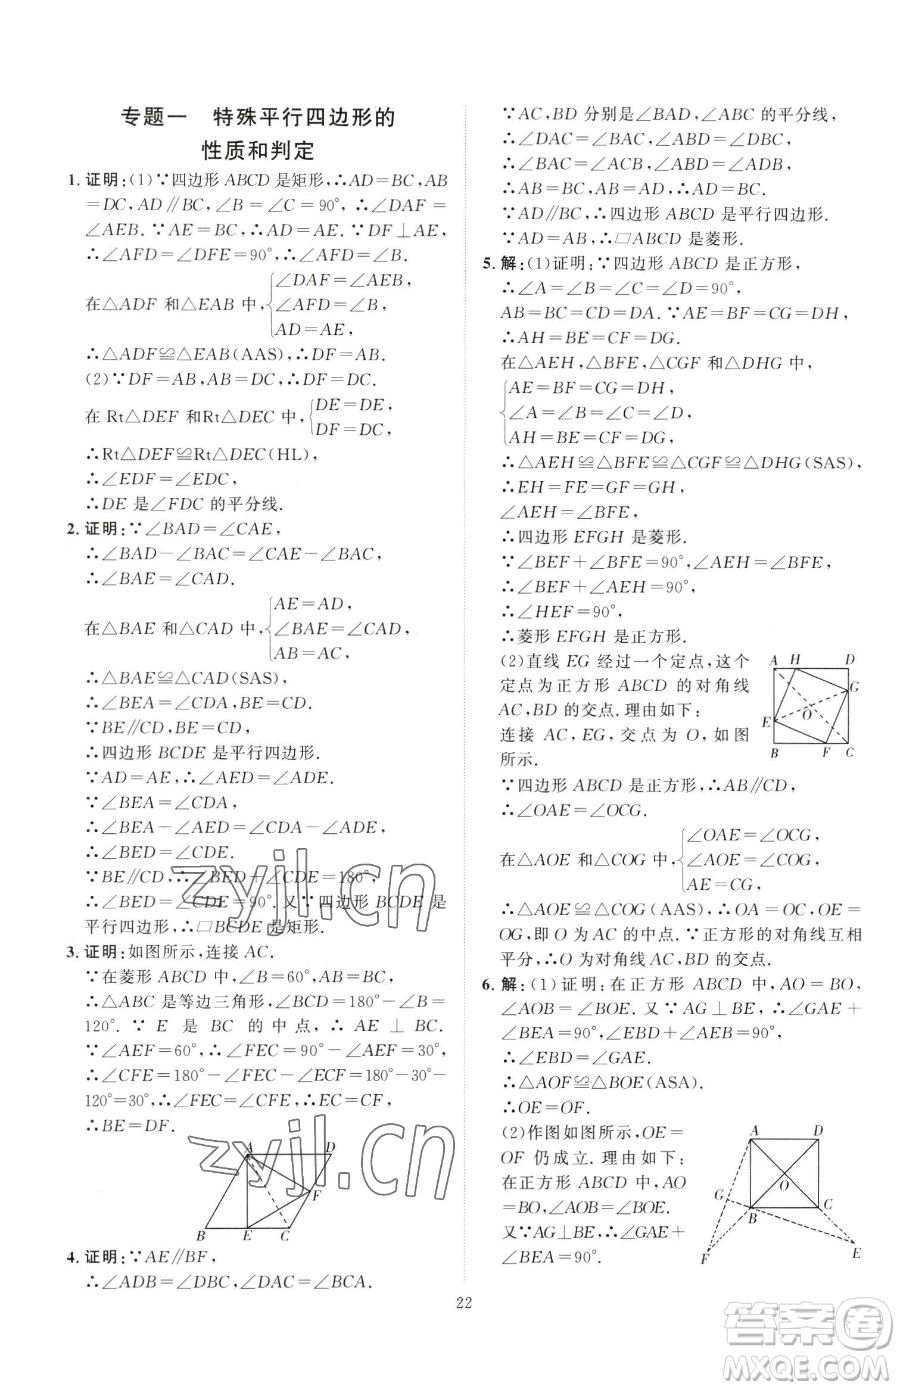 专题一 特殊平行四边形的
性质和判定
1. 证明:(1)∵四边形 ABCD 是矩形,∴AD=BC,AB
=DC,AD∥BC,∠B=∠C=90°,∴∠DAF=
∠AEB.∵AE=BC,∴AD=AE.∵DF⊥AE,
∴∠AFD=∠DFE=90°,∴∠AFD=∠B.
在△ADF 和△EAB 中,
∠DAF=∠AEB,
∠AFD=∠B,
AD=AE,
∴△ADF≌△EAB(AAS),∴DF=AB.
(2)∵DF=AB,AB=DC,∴DF=DC.
在 Rt△DEF 和Rt△DEC 中,
DE=DE,
DF=DC,
∴Rt△DEF≌Rt△DEC(HL),
∴∠EDF=∠EDC,
∴DE 是∠FDC 的平分线.
2. 证明:∵∠BAD=∠CAE,
∴∠BAD-∠BAC=∠CAE-∠BAC,
∴∠BAE=∠CAD.
在△BAE 和△CAD 中,
AE=AD,
∠BAE=∠CAD,
AB=AC,
∴△BAE≌△CAD(SAS),
∴∠BEA=∠CDA,BE=CD.
∵BE∥CD,BE=CD,
∴四边形 BCDE 是平行四边形.
∵AD=AE,∴∠AED=∠ADE.
∵∠BEA=∠CDA,
∴∠BEA-∠AED=∠CDA-∠ADE,
∴∠BED=∠CDE.
∵BE∥CD,∴∠BED+∠CDE=180°,
∴∠BED=∠CDE=90°.又∵四边形 BCDE 是
平行四边形,∴□BCDE 是矩形.
3. 证明:如图所示,连接 AC.
∵在菱形 ABCD 中,∠B=60°,∴AB=BC,
∴△ABC 是等边三角形,∠BCD=180°-∠B=
120°.∵E 是 BC 的中点,∴AE⊥BC.
∵∠AEF=60°,∴∠FEC=90°-∠AEF=30°,
∴∠CFE=180°-∠FEC-∠BCD=180°-30°-
120°=30°,∴∠FEC=∠CFE,∴EC=CF,
∴BE=DF.
A D
F
B E C
4. 证明:∵AE∥BF,
∴∠ADB=∠DBC,∠DAC=∠BCA.
∵AC,BD 分别是∠BAD,∠ABC 的平分线,
∴∠DAC=∠BAC,∠ABD=∠DBC,
∴∠BAC=∠BCA,∠ABD=∠ADB,
∴AB=BC,AB=AD,∴AD=BC.
∵AD∥BC,∴四边形 ABCD 是平行四边形.
∵AD=AB,∴□ABCD 是菱形.
5. 解:(1)证明:∵四边形 ABCD 是正方形,
∴∠A=∠B=∠C=∠D=90°,
AB=BC=CD=DA.∵AE=BF=CG=DH,
∴AH=BE=CF=DG.
在△AEH,△BFE,△CGF 和△DHG 中,
AE=BF=CG=DH,
∠A=∠B=∠C=∠D,
AH=BE=CF=DG,
∴△AEH≌△BFE≌△CGF≌△DHG(SAS),
∴EH=FE=GF=HG,
∠AEH=∠BFE,
∴四边形 EFGH 是菱形.
∵∠BEF+∠BFE=90°,∠AEH=∠BFE,
∴∠BEF+∠AEH=90°,
∴∠HEF=90°,
∴菱形 EFGH 是正方形.
(2)直线 EG 经过一个定点,这个
定点为正方形 ABCD 的对角线
AC,BD 的交点.理由如下:
连接 AC,EG,交点为 O,如图
所示.
A H D
G
E O
B F C
∵四边形 ABCD 是正方形,∴AB∥CD,
∴∠OAE=∠OCG.
在△AOE 和△COG 中,
∠OAE=∠OCG,
∠AOE=∠COG,
AE=CG,
∴△AOE≌△COG(AAS),∴OA=OC,OE=
OG,即 O 为 AC 的中点.∵正方形的对角线互相
平分,∴O 为对角线 AC,BD 的交点.
6. 解:(1)证明:在正方形 ABCD 中,AO=BO,
∠AOB=∠BOE.又∵AG⊥BE,∴∠GAE+
∠BEA=90°,∠EBD+∠BEA=90°,
∴∠EBD=∠GAE.
∴△AOF≌△BOE(ASA).
∴OE=OF.
(2)作图如图所示,OE=
OF 仍成立.理由如下:
在正方形 ABCD 中,AO
=BO,∠AOB=∠BOE.
又∵AG⊥BE,∴∠GAE+
∠BEA=90°,
A D
G O
B C
F E
22
zyjl.cn
zyjl.cn
答案圈
MXQE.COM